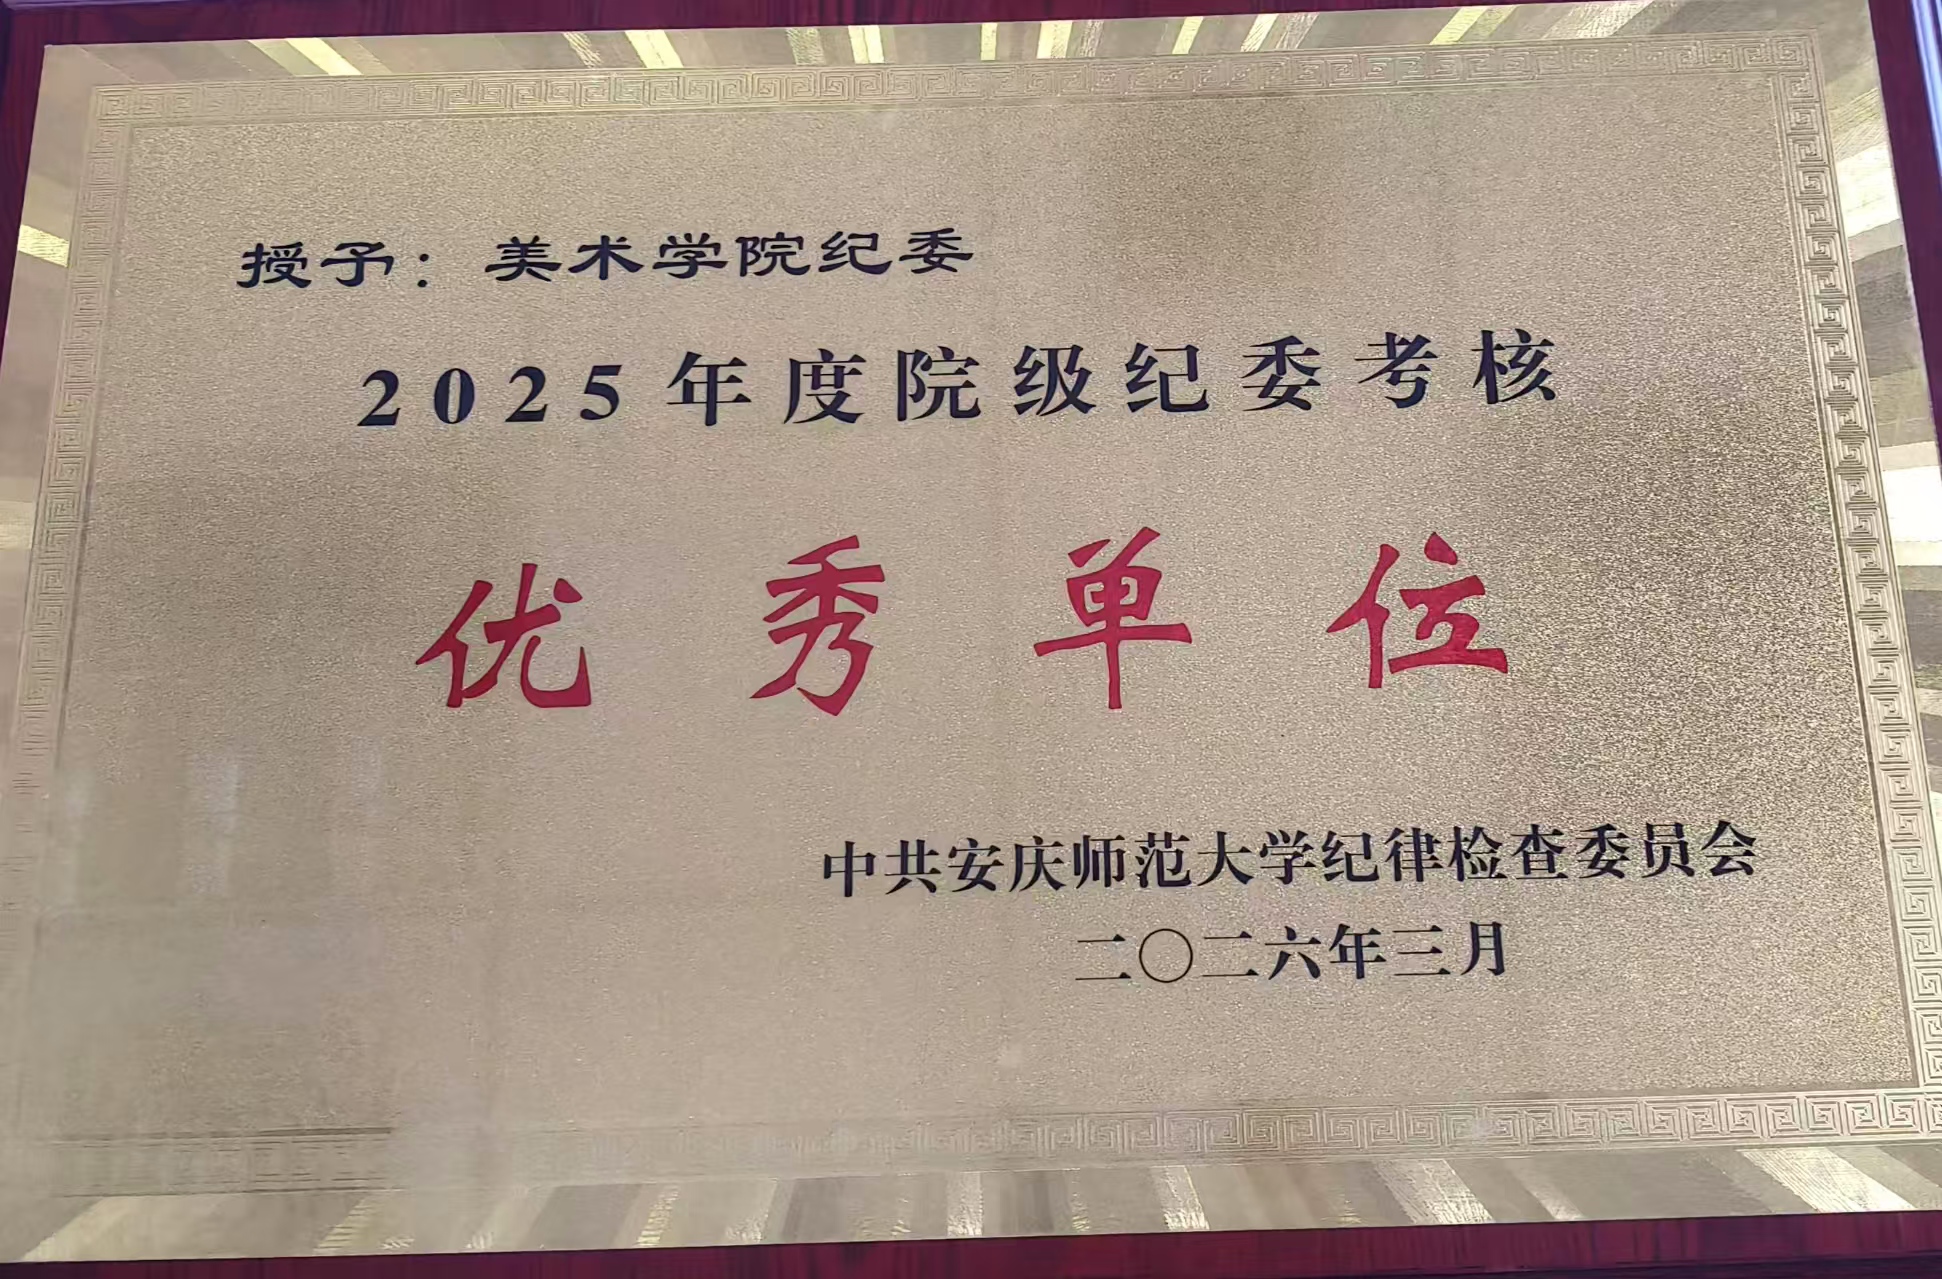 授予：美术学院纪委
2025年度院级纪委考核
优秀单位
中共安庆师范大学纪律检查委员会
二〇二六年三月